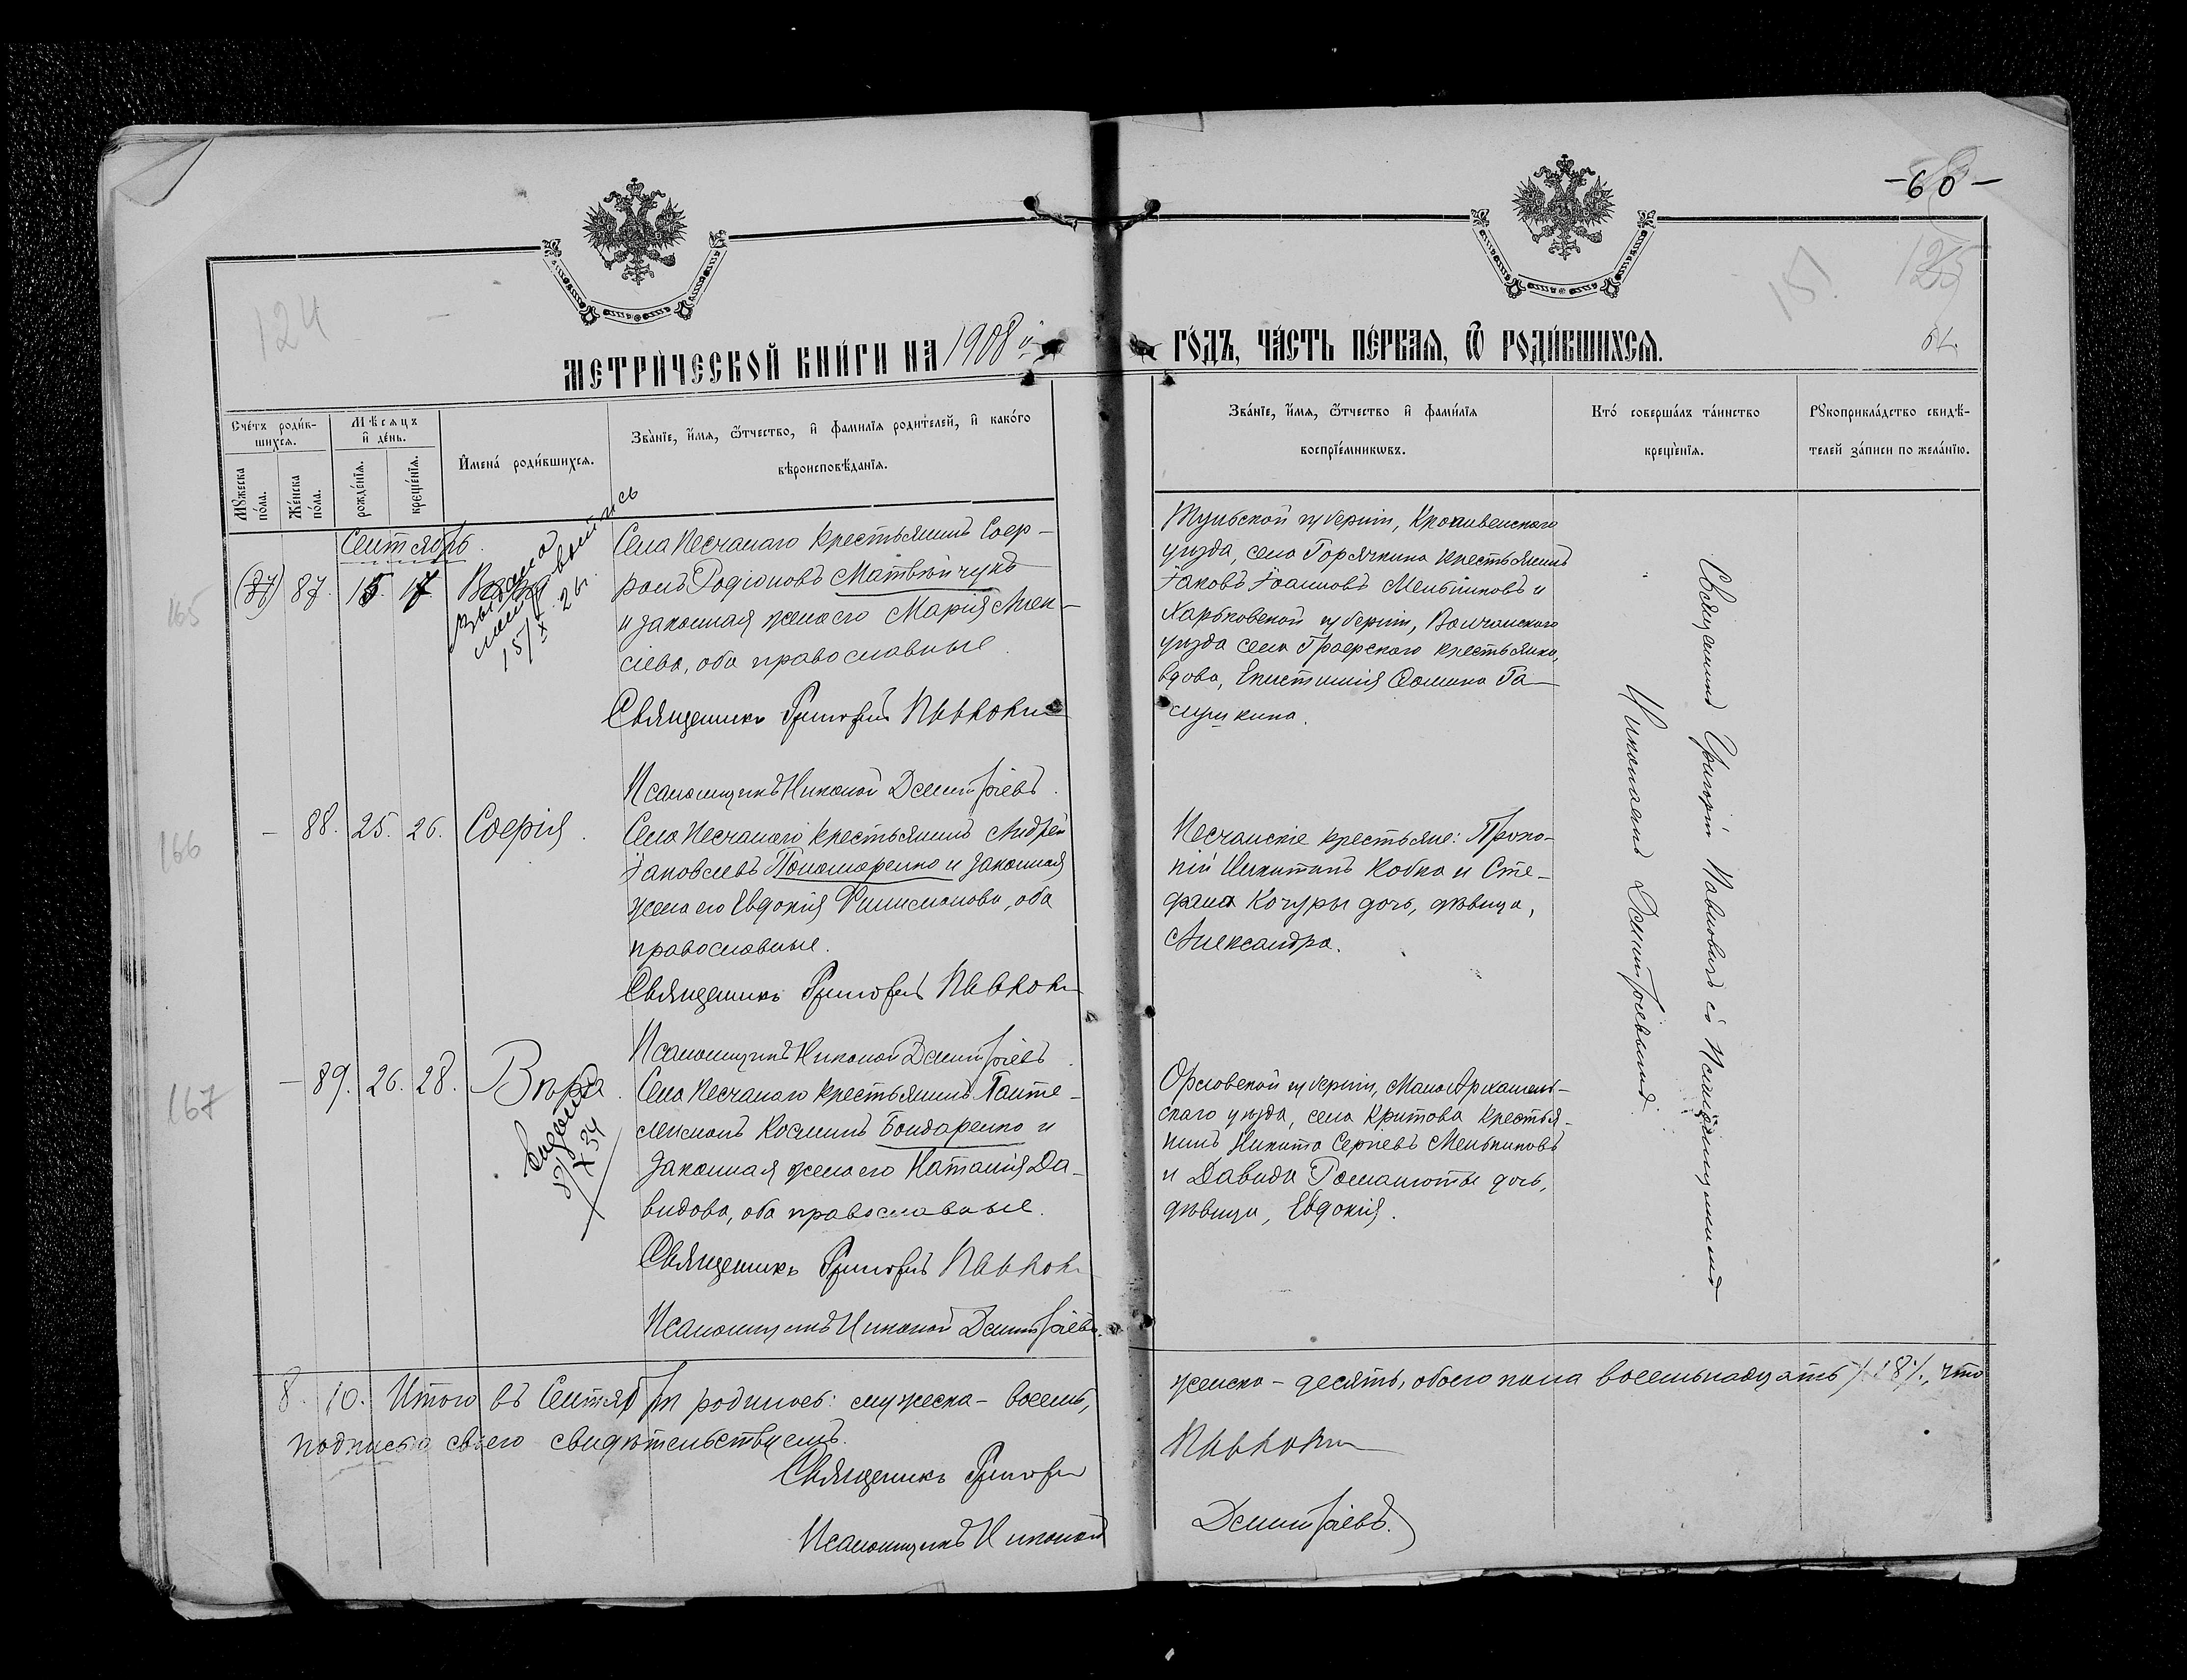 -60-
124
151
125
МЕТРИ́ЧЕСКОЙ КНИ́ГИ НА 1908 й
ГО́ДЪ, ЧА́СТЬ ПЕ́РВАѦ, Ѿ РОДИ́ВШИХСѦ.
Сче́тъ роди́в-
шихсѧ.
Мѣ́сѧцъ
и҆ де́нь.
Мꙋ́жеска
по́ла.
Же́нска
по́ла.
рожде́нїѧ.
креще́нїѧ.
И҆мена̀ роди́вшихсѧ.
Зва́нїе, и҆́мѧ, ѻ҆́тчество, и҆ фами́лїѧ роди́телей, и҆ како́гѡ
вѣроисповѣ́данїѧ.
Зва́нїе, и҆́мѧ, ѻ҆́тчество и҆ фами́лїѧ
воспрїе́мникѡвъ.
Кто̀ соверша́лъ та́инство
креще́нїѧ.
Рꙋкоприкла́дство свидѣ́-
телей за́писи по жела́нїю.
Сентябрь.
165
(87) 87. 15. 17.
15/X 26.
Села Песчанаго крестьянинъ Соф-
ронъ Родіоновъ Матвѣйчукъ
и законная жена его Марія Алек-
сіева, оба православные.
Священникъ Григорій Павловъ
Псаломщикъ Николай Димитріевъ.
Тульской губерніи, Крапивенскаго
уѣзда, села Горячкина крестьянинъ
Іаковъ Іоанновъ Мельниковъ и
Харьковской губерніи, Волчанскаго
уѣзда села Графскаго крестьянка,
вдова, Епистимія Ѳомина Га-
лушкина.
Священникъ Григорій Павловъ съ Псаломщикомъ
Николаемъ Димитріевымъ.
166
- 88. 25. 26. Софія.
Села Песчанаго крестьянинъ Андрей
Іаковлевъ Пономаренко и законная
жена его Евдокія Филимонова, оба
православные.
Священникъ Григорій Павловъ
Псаломщикъ Николай Димитріевъ.
Песчанскіе крестьяне: Проко-
пій Никитинъ Кобка и Сте-
фана Кочуры дочь, дѣвица,
Александра.
167
- 89. 26. 28. Вѣра.
Села Песчанаго крестьянинъ Панте-
леимонъ Косминъ Бондаренко и
законная жена его Наталія Да-
видова, оба православные.
Священникъ Григорій Павловъ
Псаломщикъ Николай Димитріевъ.
Орловской губерніи, Малоархангель-
скаго уѣзда, села Критова крестья-
нинъ Никита Сергіевъ Мельниковъ
и Давида Романюты дочь,
дѣвица, Евдокія.
8. 10. Итого въ Сентябрѣ родилось: мужеска - восемь,
женска - десять, обоего пола восемьнадцать /18/, что
подписью своею свидѣтельствуемъ.
Священникъ Григорій
Павловъ
Псаломщикъ Николай
Димитріевъ.